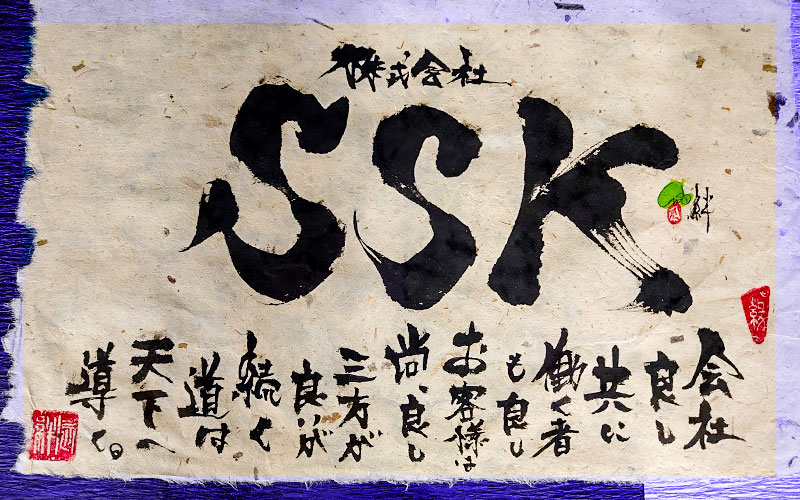 株式会社
SSK
会社
良し
共に
働く者
も良し
お客様は
尚、良し
三方が
良いが
続く
道は
天下へ
導く。